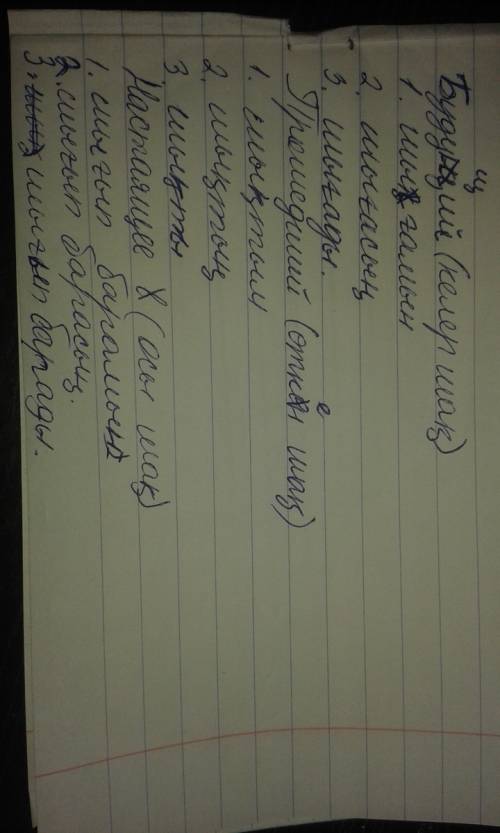 Будущий (келер шақ)
1. шығамын
2. шығасың
3. шығады.
Прошедший (откен шақ)
1. шықтым
2. шықтың
3. шықты
Настаящее (осы шақ)
1. шығып барамын
2. шығып барасың.
3. шығып барады.